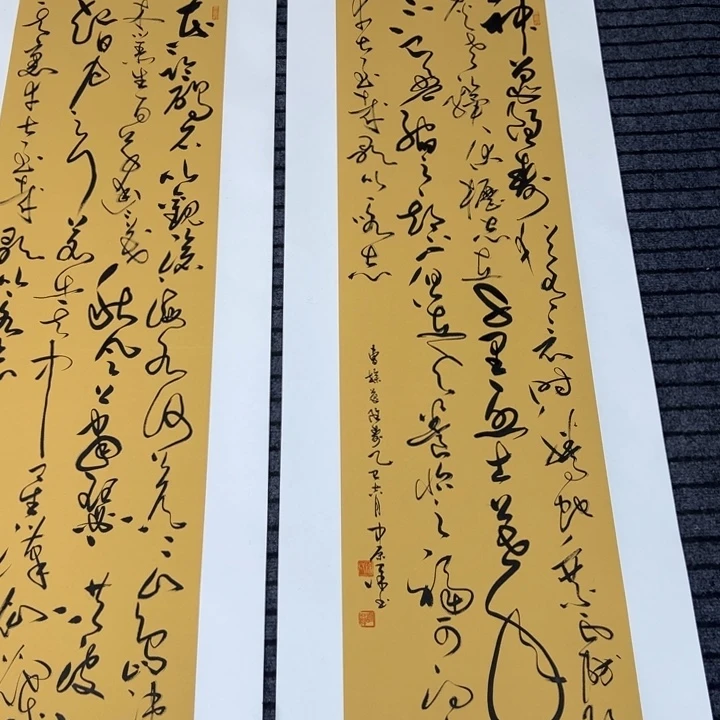 神龜雖壽猶有竟時騰蛇乘霧
老驥伏櫪志在千里烈士暮年
已盈縮之期不但在天養怡之福可得
幸甚至哉歌以詠志
曹操龜雖壽乙巳六月中原
東臨碣石以觀滄海水何澹澹山島竦
木叢生百草豐茂秋風蕭瑟洪波
起日月之行若出其中星漢燦爛
其裏幸甚至哉
歌以詠志